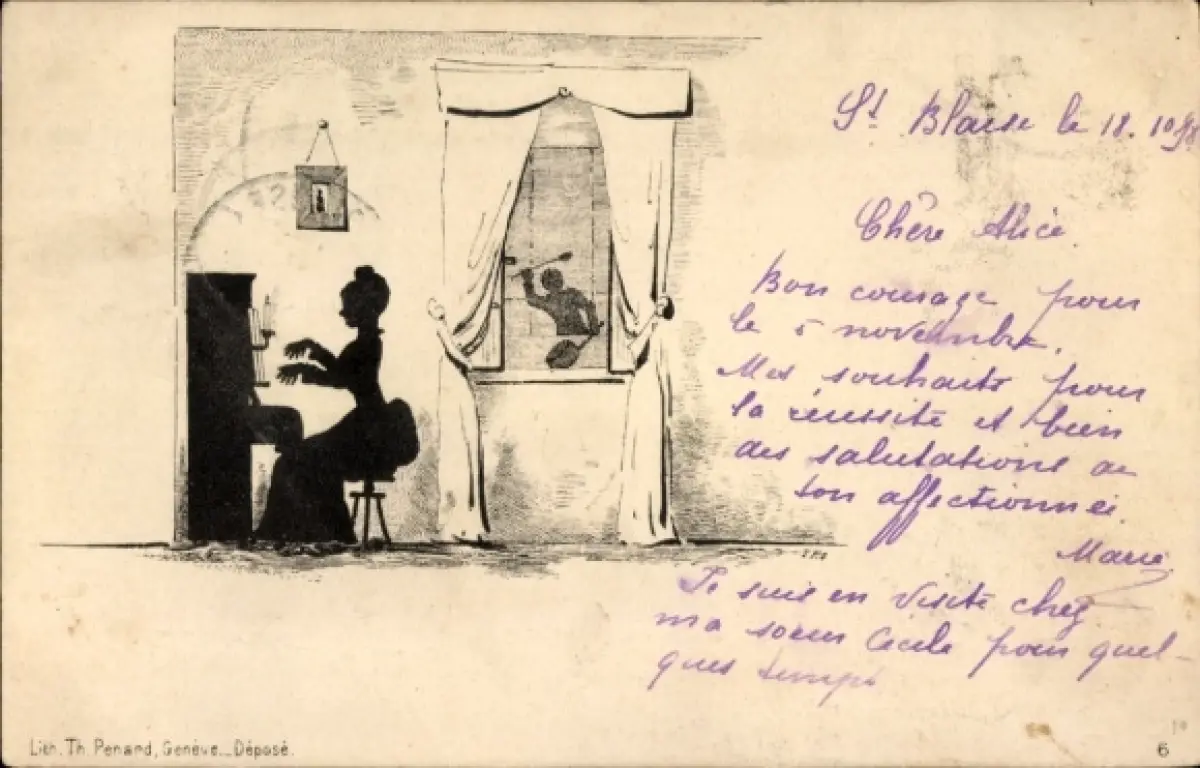 St Blaise le 18. 10
Chère Alice.
Bon courage pour
le 5 novembre.
Mes souhaits pour
la réussite et bien
des salutations de
ton affectionnei
Marie
Je suis en visite chez
ma soeur Cécile pour quel-
ques temps
Lith. Th. Penard, Genève._Déposé.
6